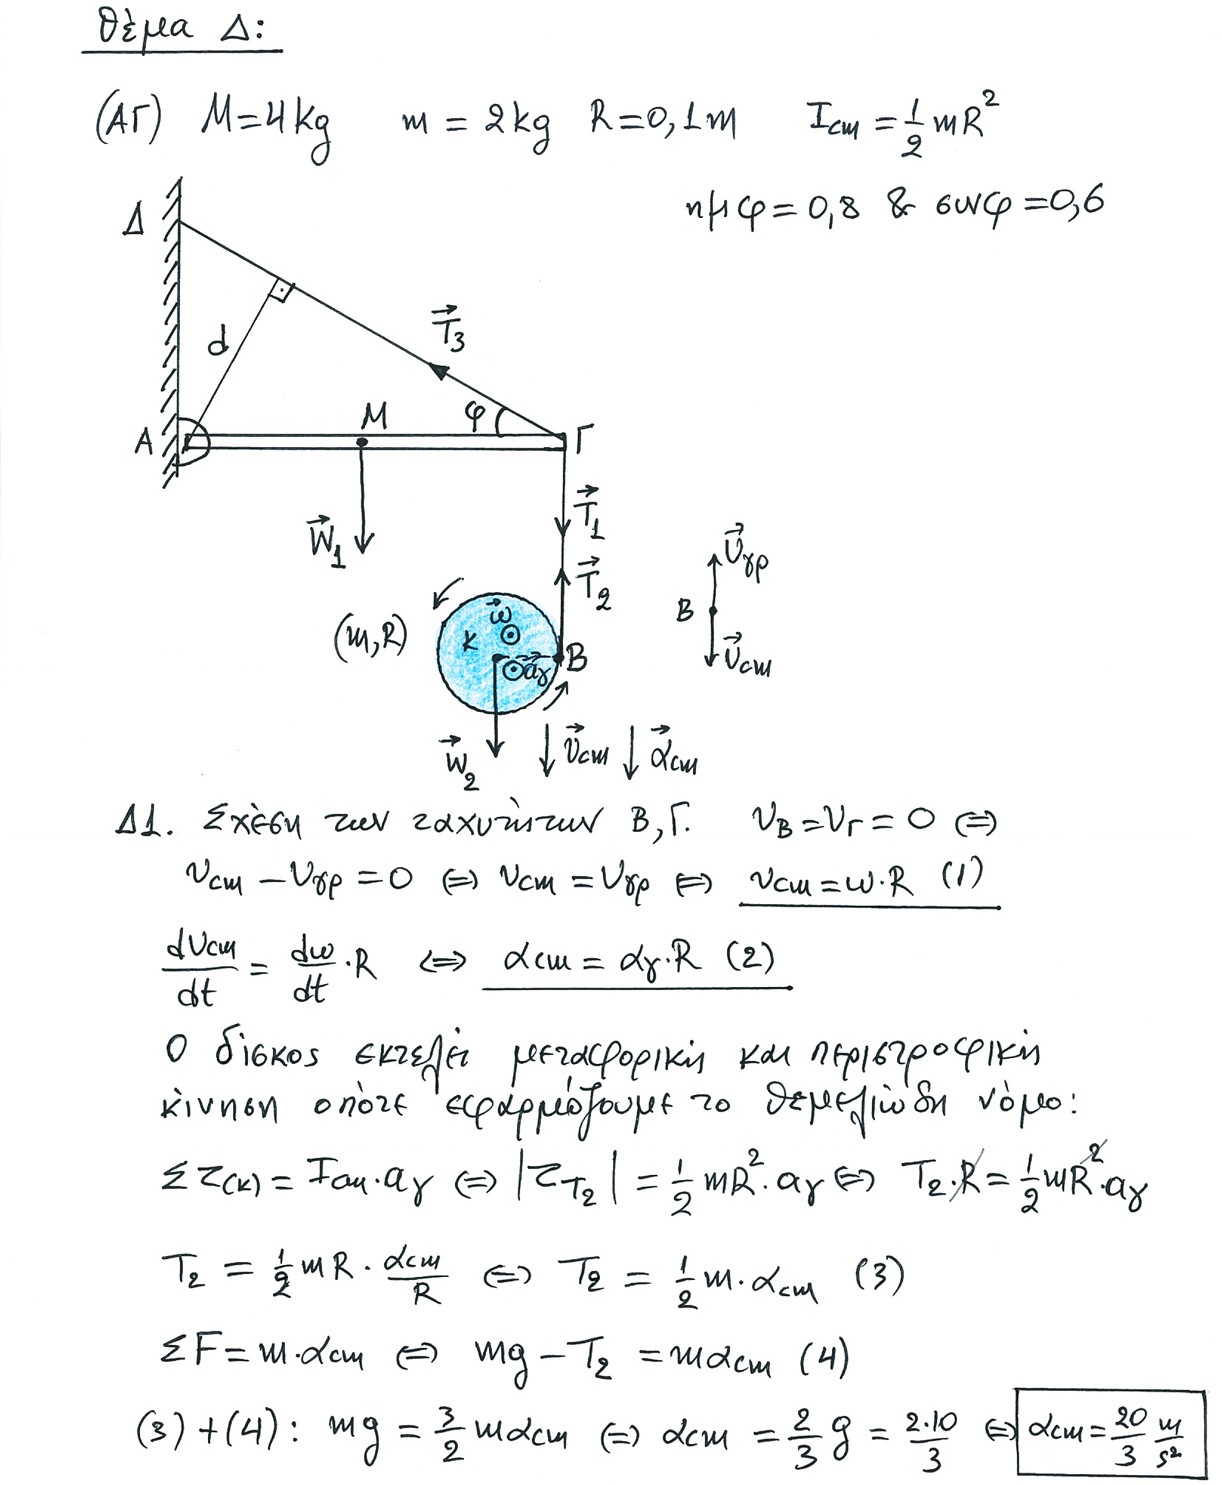 Θέμα Δ:
(ΑΓ) M=4kg m = 2kg R=0,1m Icm = 1/2 mR²
ημφ = 0,8 & συνφ = 0,6
Δ
d
T₃
A
M
φ
Γ
W₁
T₁
T₂
(m,R)
K
ω
αγ
B
W₂
υcm
αcm
υγρ
B
υcm
Δ1. Σχέση των ταχυτήτων Β,Γ. υΒ = υΓ = 0 ⇔
υcm – υγρ = 0 ⇔ υcm = υγρ ⇔ υcm = ω·R (1)
dυcm/dt = dω/dt ·R ⇔ αcm = αγ·R (2)
Ο δίσκος εκτελεί μεταφορική και περιστροφική
κίνηση οπότε εφαρμόζουμε το θεμελιώδη νόμο:
Στ(κ) = Icm·αγ ⇔ |τT₂| = 1/2 mR²·αγ ⇔ T₂·R = 1/2 mR²·αγ
T₂ = 1/2 mR · αcm/R ⇔ T₂ = 1/2 m·αcm (3)
ΣF = m·αcm ⇔ mg – T₂ = mαcm (4)
(3)+(4): mg = 3/2 mαcm ⇔ αcm = 2/3 g = 2·10/3 ⇔ αcm = 20/3 m/s²